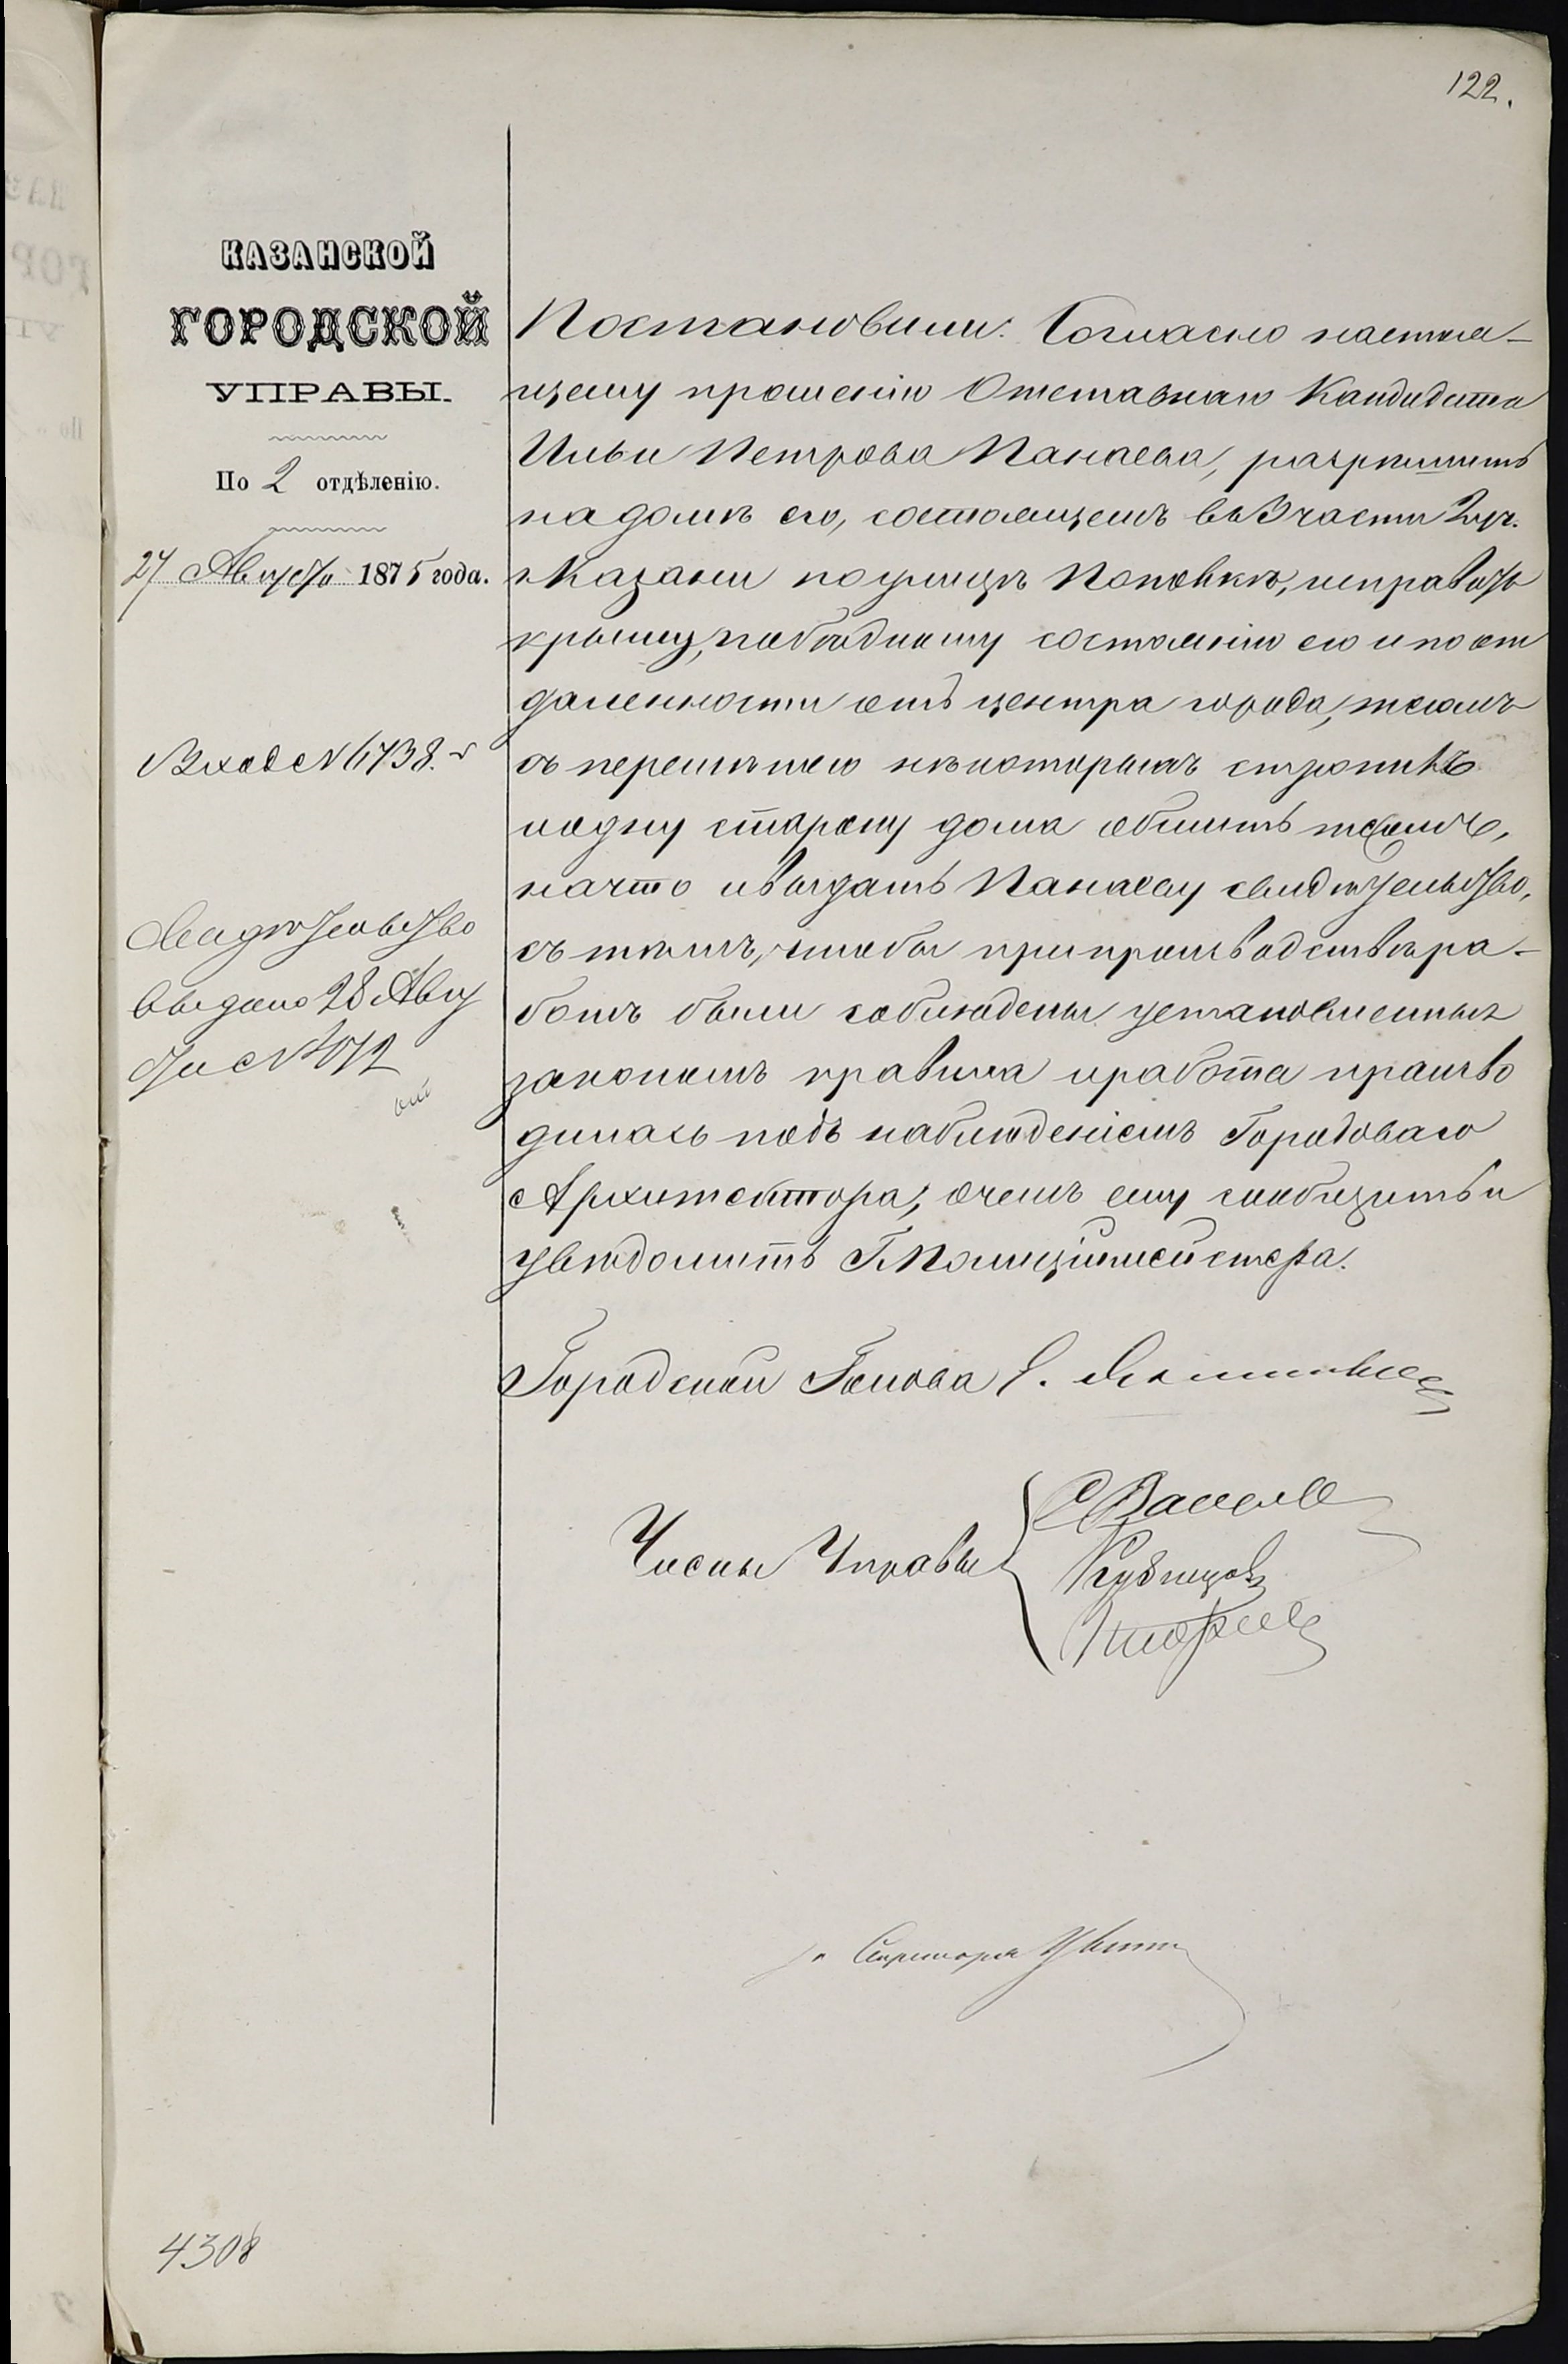 122.
КАЗАНСКОЙ
ГОРОДСКОЙ
УПРАВЫ.
По 2 отдѣленію.
27 Августа 1875 года.
Вход № 6738.
Свидѣтельство
выдано 28 Авгу
ста № 4072
Постановили: Согласно настоя-
щему прошенію Отставнаго Кандидата
Ильи Петрова Панаева, разрѣшить
на домѣ его, состоящемъ въ 3 части 2 уч.
г. Казани по улицѣ Поповкѣ, исправить
крышу, по свободному состоянію его и по от
даленности отъ центра города, тесомъ
съ перемѣною нѣкоторыхъ стропилъ
и одну сторону дома обшить тесомъ,
на что и выдать Панаеву свидѣтельство,
съ тѣмъ, чтобы при производствѣ ра-
ботъ были соблюдены установленныя
закономъ правила и работа произво
дилась подъ наблюденіемъ Городоваго
Архитектора, о чемъ ему сообщить и
увѣдомить Г. Полиціймейстера.
Городской Голова
Члены Управы
Кузнецовъ
Секретаря
4308